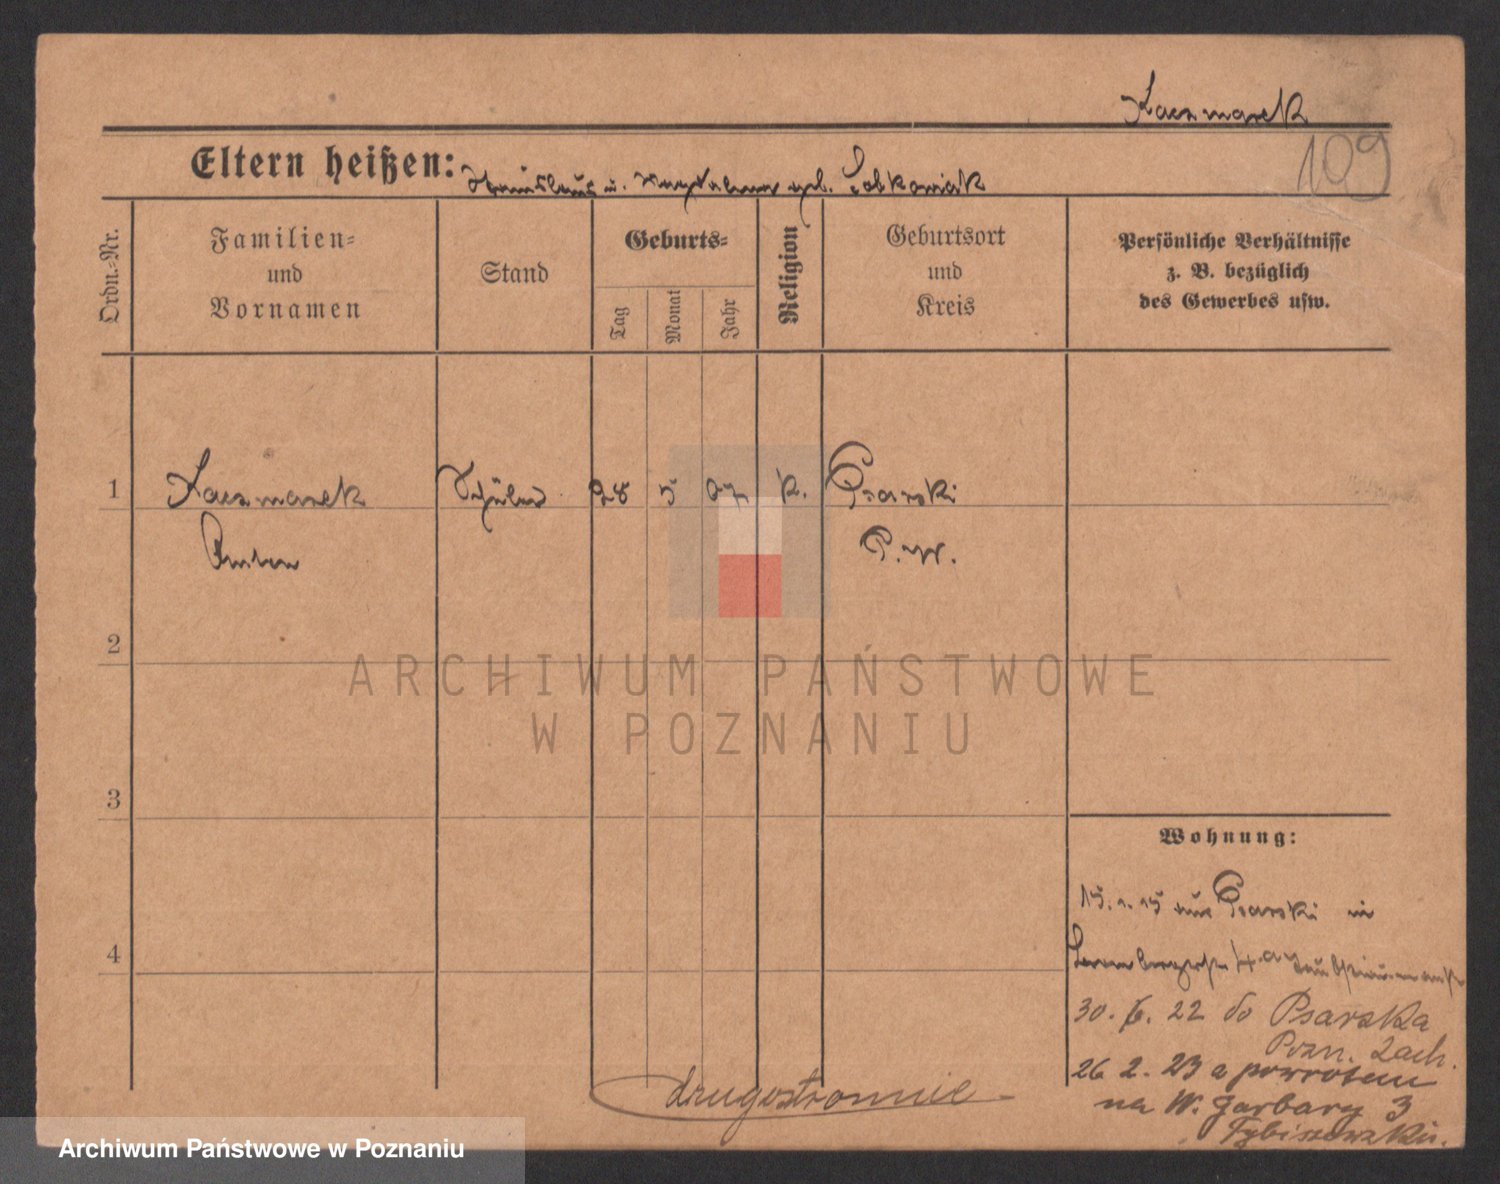 Kaczmarek
109
Eltern heißen: Stanislaus u. Magdalena geb. Sobkowiak
Ordn.-Nr.
Familien- und Vornamen
Stand
Geburts-
Tag
Monat
Jahr
Religion
Geburtsort und Kreis
Persönliche Verhältnisse
z. B. bezüglich
des Gewerbes usw.
1 Kaczmarek Schüler 28 5 07 k. Psarski
Anton P. W.
2
3
4
Wohnung:
15. 1. 15 aus Psarski in
4a
30. 6. 22 do Psarska
Pozn. Zach.
26 2. 23 a powrotem
na W. Garbary 3
drugostronnie
ARCHIWUM PAŃSTWOWE
W POZNANIU
Archiwum Państwowe w Poznaniu